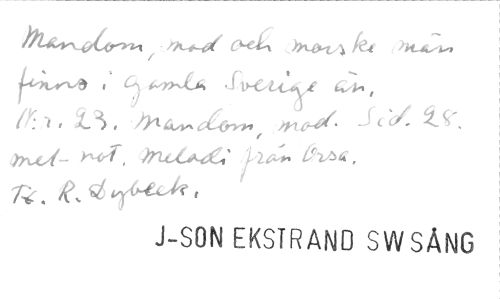 Mandom, mod och morske män
finns i Gamla Sverige än.
N:r. 23. Mandom, mod. Sid. 28.
mel-not. Melodi från Orsa.
Tx. R. Dybeck.
J-SON EKSTRAND SW SÅNG